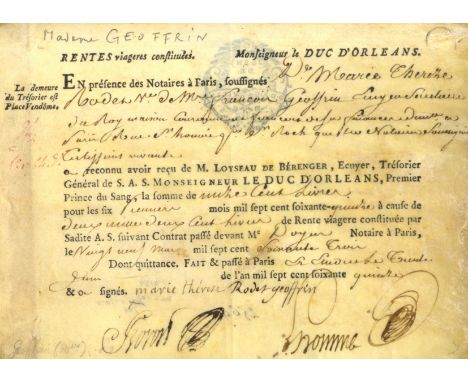 Madame GEOFFRIN
RENTES viageres constituées. Monseigneur le DUC D'ORLEANS.
La demeure
du Trésorier est
Place Vendôme.
EN présence des Notaires à Paris, soussignés De. Marie Therese
Rodet Ve. de Mre. françois Geoffrin Ecuyer Secretaire
du Roy
Paris Rue St. honoré Psse. St. Roch
Certiffiens vivante
a reconnu avoir reçu de M. LOYSEAU DE BÉRENGER, Ecuyer, Trésorier
Général de S. A. S. MONSEIGNEUR LE DUC D'ORLEANS, Premier
Prince du Sang, la somme de mille Cent Livres
pour les six premiers mois mil sept cent soixante-quinze à cause de
deux mille deux Cent Livres de Rente viagere constituée par
Sadite A. S. suivant Contrat passé devant Me Doyen Notaire à Paris,
le Vingt un Mars mil sept cent Soixante Trois
Dont quittance. FAIT & passé à Paris
de l'an mil sept cent soixante quinze
& a signés. marie thérese Rodet geoffrin
Geoffrin (Mme)